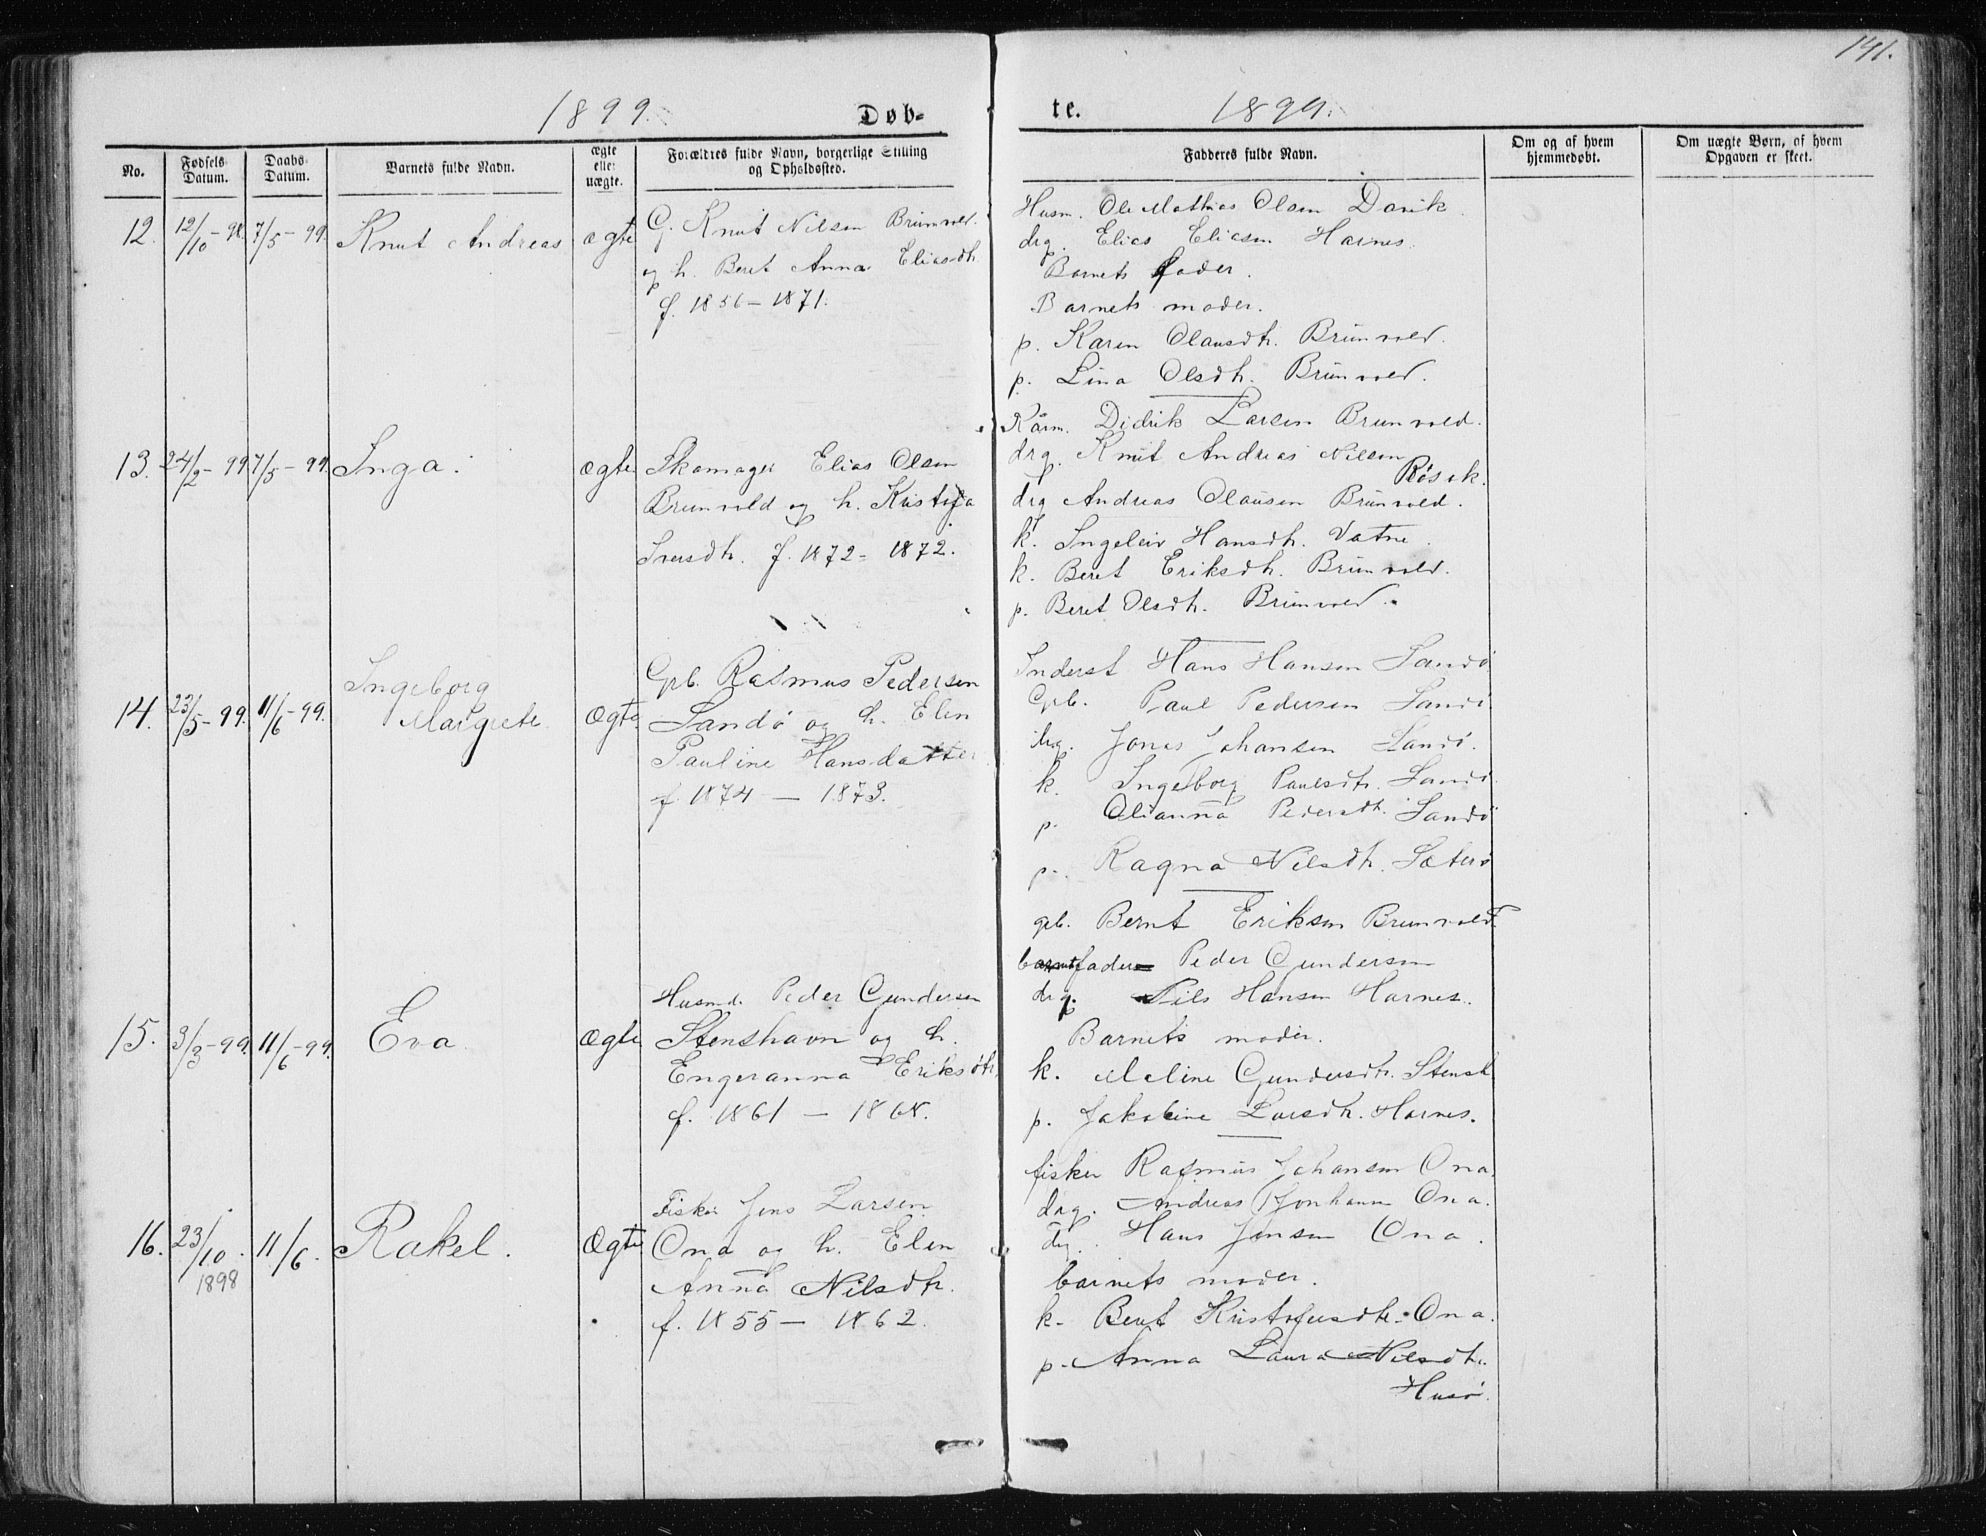 141.
1899. Døb-
te. 1899.
No. Fødsels Datum. Daabs Datum. Barnets fulde Navn. ægte eller uægte. Forældres fulde Navn, borgerlige Stilling og Opholdssted.
Fadderes fulde Navn. Om og af hvem hjemmedøbt. Om uægte Børn, af hvem Opgaven er skeet.
12. 12/10-98. 7/5-99. Knut Andreas ægte G. Knut Nilsen Brunvold.
og h. Beret Anna Eliasdh.
f. 1856-1871.
Husm. Ole Mathias Olsen
drg. Elias Eliasen Harnes.
Barnets fader.
Barnets moder.
p. Karen Olausdh. Brunvold.
p. Lina Olsdh. Brunvold.
13. 24/2-99. 7/5-99. Inga. ægte Skomager Elias Olsen
Brunvold og h.
Iversdh. f. 1872-1872.
Kårm. Didrik Larsen Brunvold.
drg. Knut Andreas Nilsen
Røsok.
drg Andreas Olausen Brunvold.
k. Ingeleiv Hansdh. Vatne.
k. Beret Eriksdh. Brunvold.
p. Beret Olsdh. Brunvold.
14. 23/5-99. 11/6-99. Ingeborg
Margrete ægte. Grb. Rasmus Pedersen
Sandø og h. Elen
Pauline Hansdatter
f 1874 - 1873.
Inderst Hans Hansen Sandø
Grb. Paul Pedersen Sandø
drg. Jonas Johansen Sandø.
k. Ingeborg Paulsdtr. Sandø
p. Olianna Pedersdtr. Sandø
p. Ragna Nilsdtr. Sæterø
15. 3/3-99. 11/6-99. Eva. ægte Husmd. Peder Gundersen
Stenshavn og h.
Engeranna Eriksdtr.
f. 1861 - 1868.
grb. Bernt Eriksen Brunvold.
barnetsfader Peder Gundersen
drg. Nils Hansen Harnes.
Barnets moder.
k. Maline Gundersdtr. Stensh
p. Jakobine Larsdh. Harnes.
16. 23/10. 1898 11/6. Rakel. ægte Fisker Jens Larsen
Ona og h. Elen
Anna Nilsdtr.
f. 1855 - 1862.
fisker Rasmus Johansen Ona.
drg. Andreas Ona.
dg. Hans Jensen Ona.
barnets moder.
k. Berit Kristofersdtr. Ona.
p. Anna Laura Nilsdtr.
Husø.